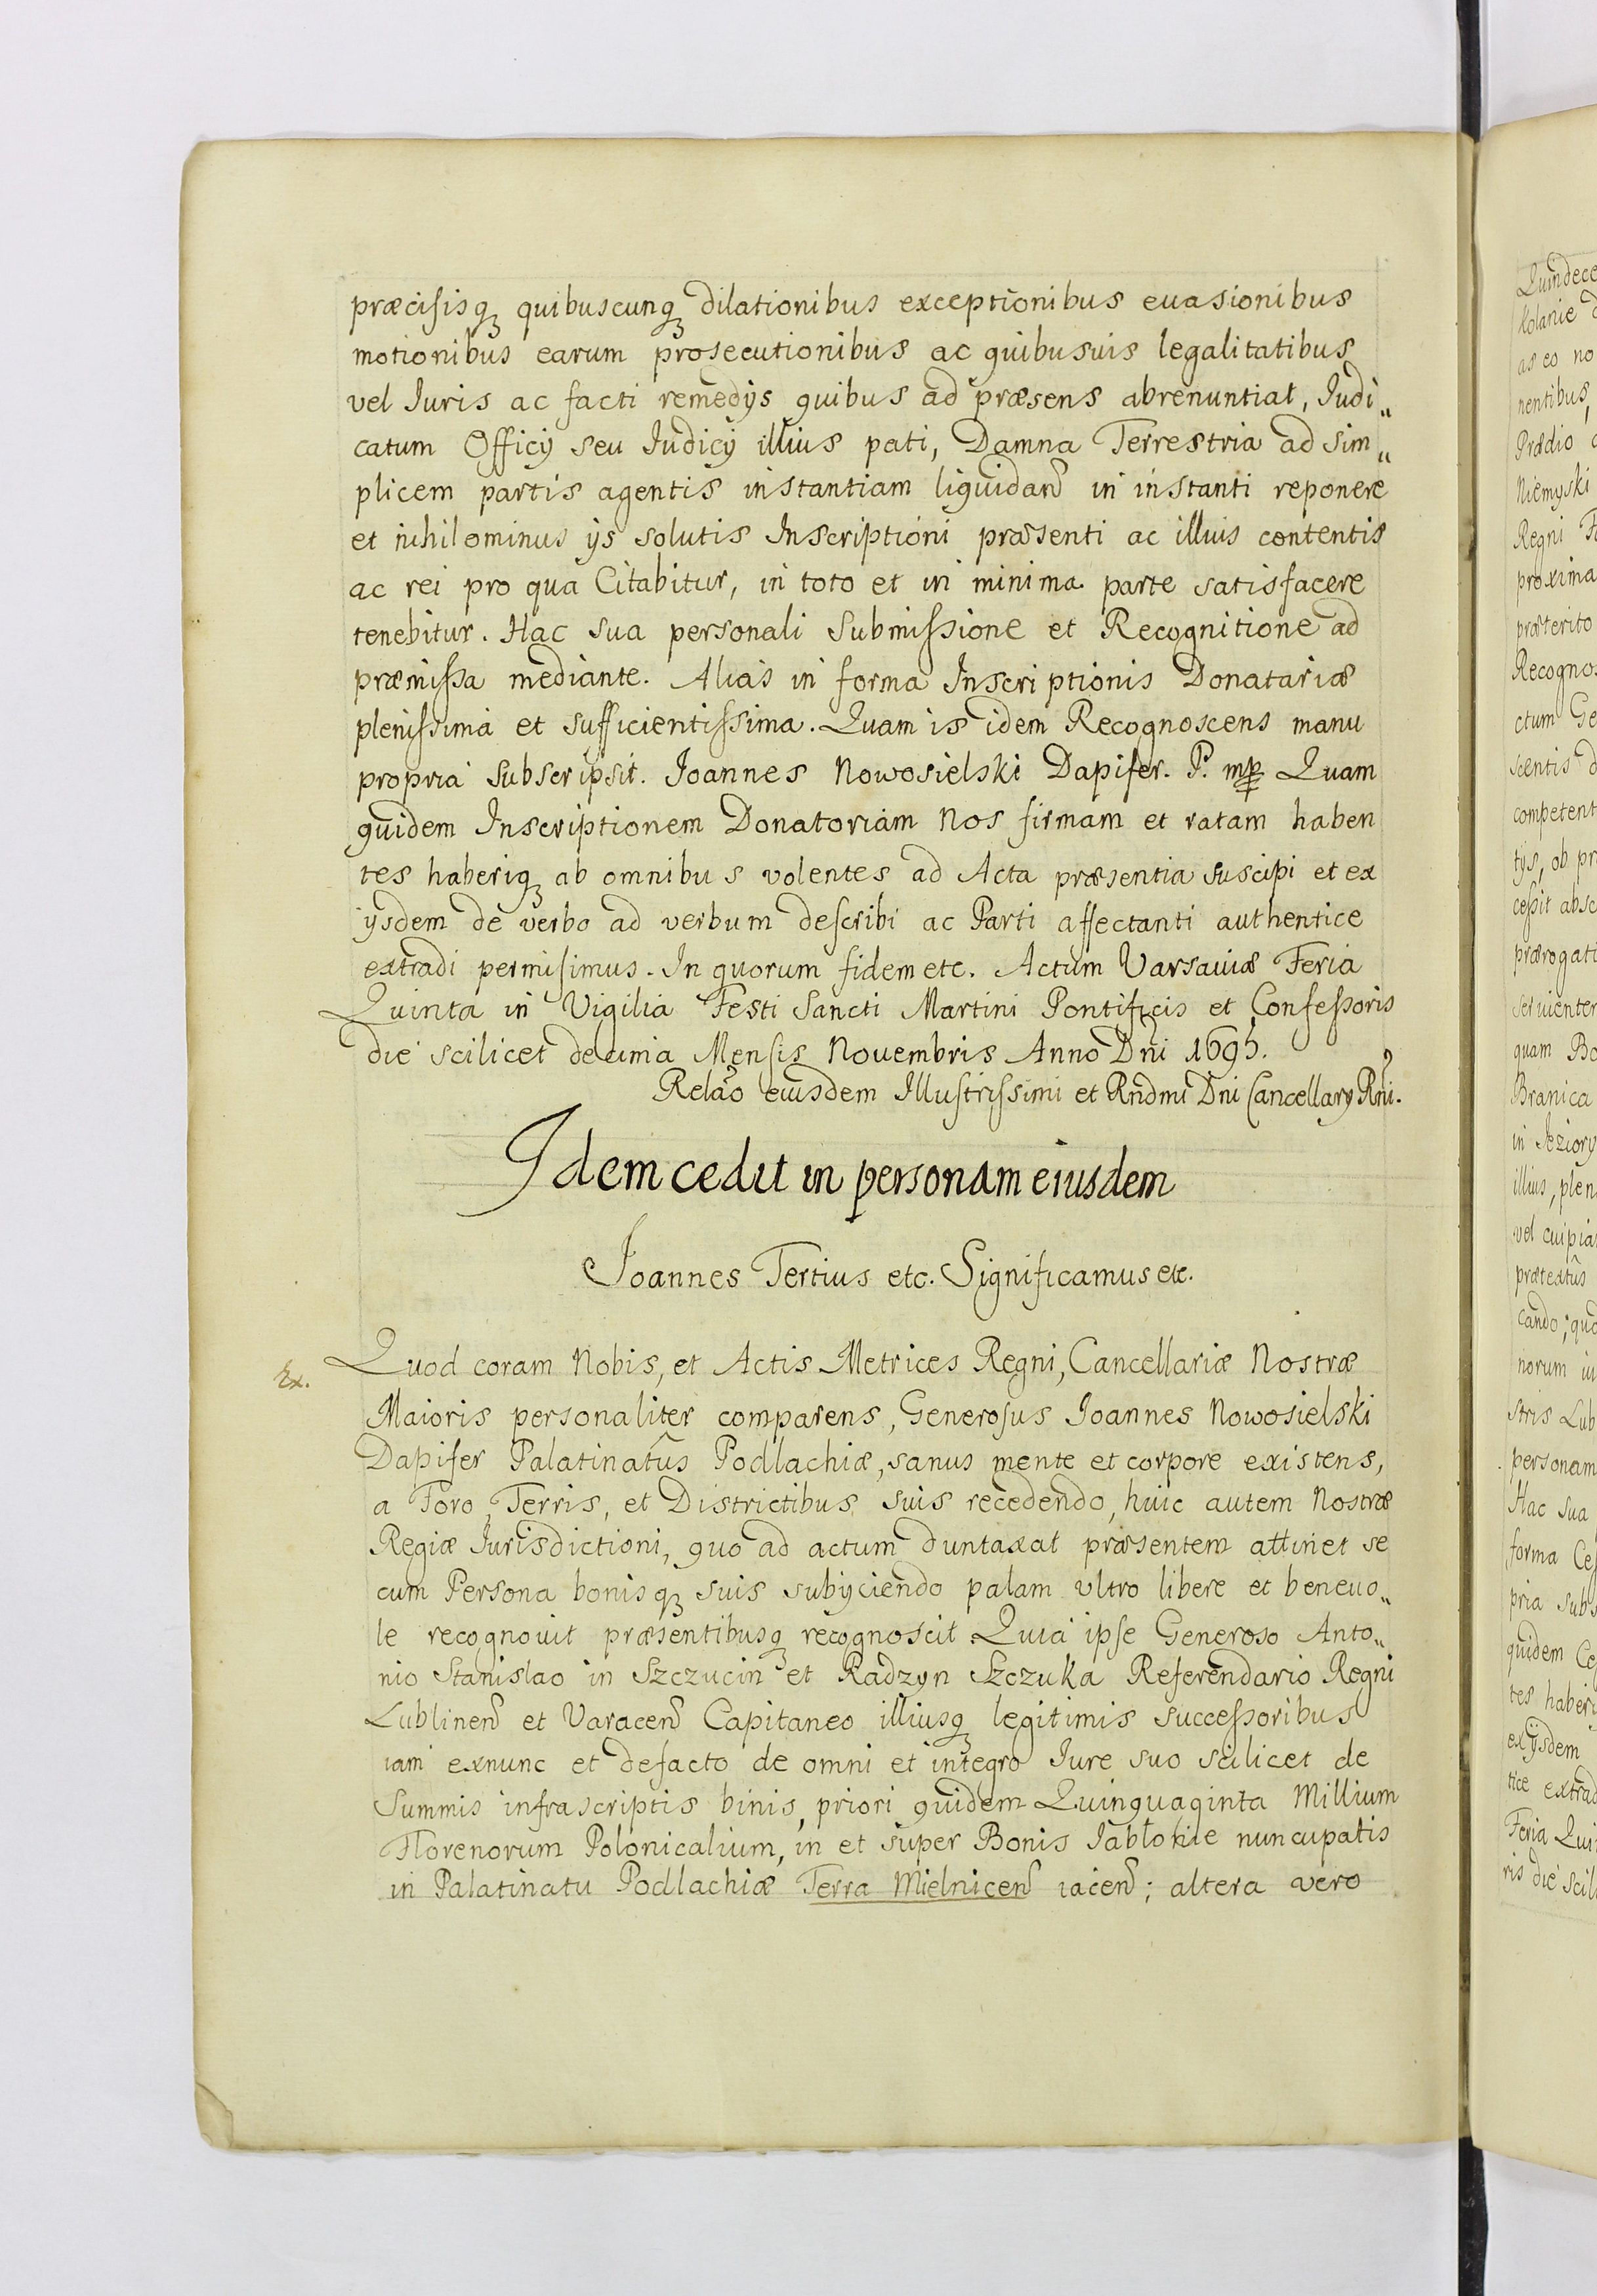 præcisisq₃ quibuscunq₃ dilationibus exceptionibus euasionibus
motionibus earum prosecutionibus ac quibusuis legalitatibus
vel Iuris ac facti remedijs quibus ad præsens abrenuntiat, Iudi„
catum Officÿ seu Iudicÿ illius pati, Damna Terrestria ad sim„
plicem partis agentis instantiam liquidan̄ in instanti reponere
et nihilominus ijs solutis Inscriptioni præsenti ac illius contentis
ac rei pro qua Citabitur, in toto et in minima parte satisfacere
tenebitur. Hac sua personali Submissione et Recognitione ad
præmissa mediante. Alias in forma Inscriptionis Donatariæ
plenissima et sufficientissima. Quam is idem Recognoscens manu
propria subscripsit. Joannes Nowosielski Dapifer. P. mp Quam
quidem Inscriptionem Donatoriam Nos firmam et ratam haben
tes haberiq₃ ab omnibus volentes ad Acta præsentia suscipi et ex
ijsdem de verbo ad verbum describi ac Parti affectanti authentice
extradi permisimus. In quorum fidem etc. Actum Varsauiæ Feria
Quinta in Vigilia Festi Sancti Martini Pontificis et Confessoris
die scilicet decima Mensis Nouembris Anno Dn̄i 1695.
Relao͠ eiusdem Illustrissimi et Rn̄dmi Dn̄i Cancellarÿ Rn̄i.
Idem cedit in personam eiusdem
Joannes Tertius etc. Significamus etc.
Ex. Quod coram Nobis, et Actis Metrices Regni, Cancellariæ Nostræ
Maioris personaliter comparens, Generosus Joannes Nowosielski
Dapifer Palatinatûs Podlachiæ, sanus mente et corpore existens,
a Foro, Terris, et Districtibus suis recedendo, huic autem Nostræ
Regiæ Iurisdictioni, quo ad actum duntaxat præsentem attinet se
cum Persona bonisq₃ suis subijciendo palam vltro libere et beneuo„
le recognouit præsentibusq₃ recognoscit. Quia ipse Generoso Anto„
nio Stanislao in Szczucin et Radzyn Szczuka Referendario Regni
Lublinen̄ et Varacen̄ Capitaneo illiusq₃ legitimis successoribus
iam exnunc et defacto de omni et integro Iure suo scilicet de
Summis infrascriptis binis, priori quidem Quinquaginta Millium
Florenorum Polonicalium, in et super Bonis Iabłonie nuncupatis
in Palatinatu Podlachiæ Terra Mielnicen̄ iacen̄; altera vero